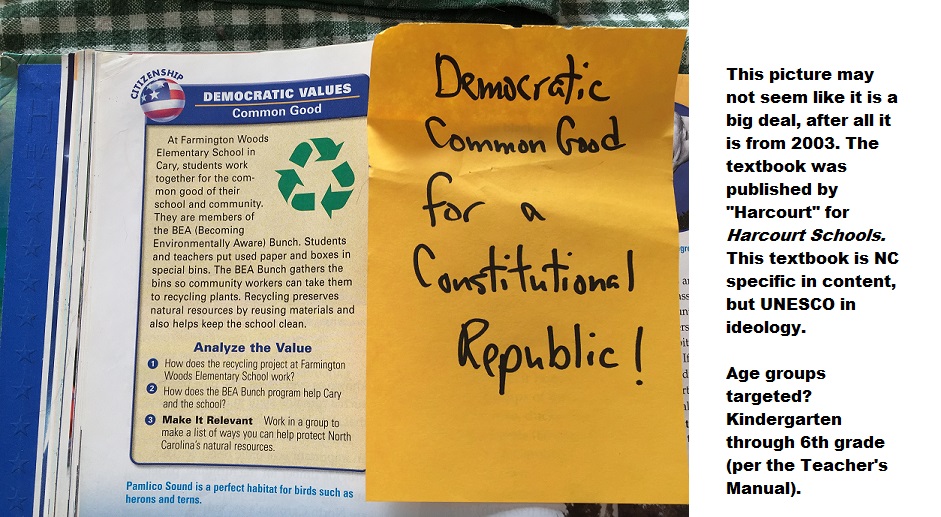 CITIZENSHIP
DEMOCRATIC VALUES
Common Good
At Farmington Woods
Elementary School in
Cary, students work
together for the com-
mon good of their
school and community.
They are members of
the BEA (Becoming
Environmentally Aware) Bunch. Students
and teachers put used paper and boxes in
special bins. The BEA Bunch gathers the
bins so community workers can take them
to recycling plants. Recycling preserves
natural resources by reusing materials and
also helps keep the school clean.
Analyze the Value
1 How does the recycling project at Farmington
Woods Elementary School work?
2 How does the BEA Bunch program help Cary
and the school?
3 Make It Relevant Work in a group to
make a list of ways you can help protect North
Carolina's natural resources.
Pamlico Sound is a perfect habitat for birds such as
herons and terns.
Democratic
Common Good
for a
Constitutional
Republic!
This picture may
not seem like it is a
big deal, after all it
is from 2003. The
textbook was
published by
"Harcourt" for
Harcourt Schools.
This textbook is NC
specific in content,
but UNESCO in
ideology.
Age groups
targeted?
Kindergarten
through 6th grade
(per the Teacher's
Manual).